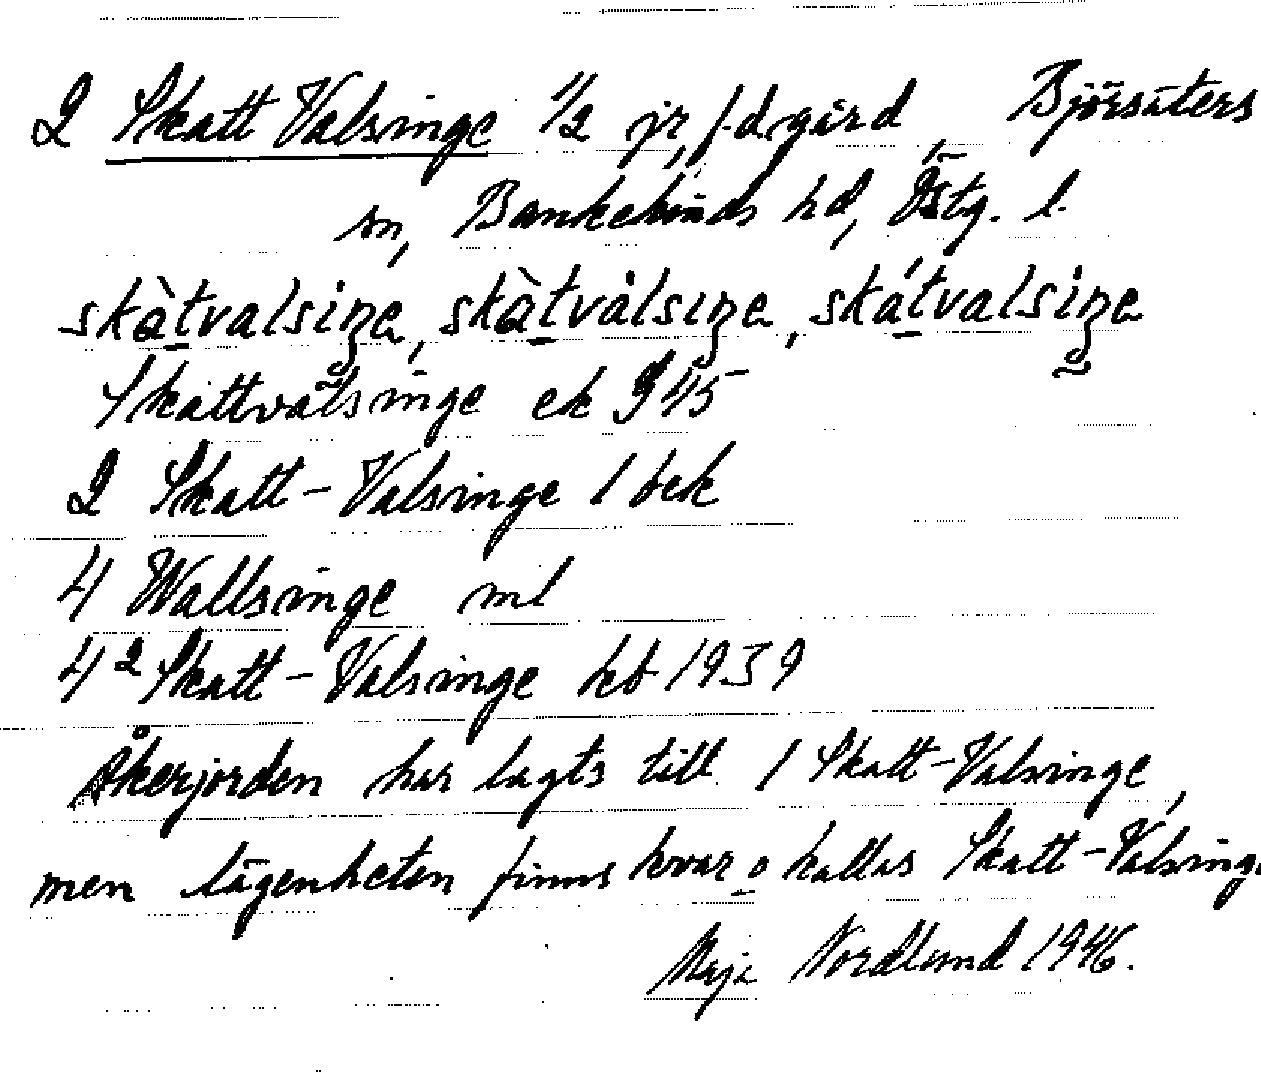 2 Skatt Valsinge 1/2 jr, f.d. gård, Björsäters
sn, Bankekinds hd, Östg. l.
skàtvalsiŋe, skàtvàlsiŋe, skátvalsiŋe
Skattvalsinge ek J 45
2 Skatt-Valsinge 1 bek
4 Wallsinge ml
4² Skatt-Valsinge hb 1939
Åkerjorden har lagts till 1 Skatt-Valsinge,
men lägenheten finns kvar o kallas Skatt-Valsing.
Maja Nordlund 1946.